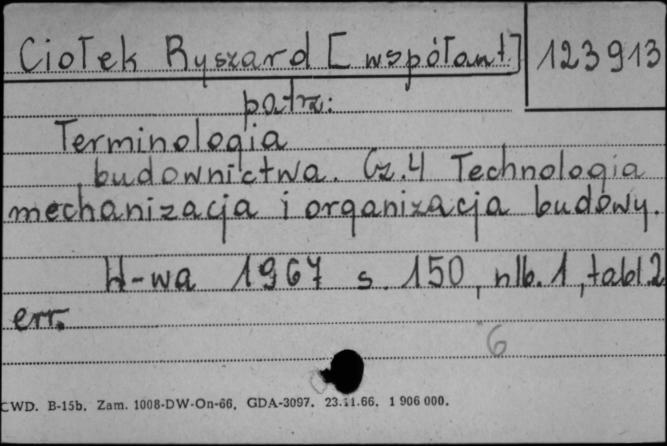 Ciołek Ryszard [współaut.] 123913
patrz:
Terminologia
budownictwa. Cz.4 Technologia
mechanizacja i organizacja budowy.
W-wa 1967 s. 150, nlb. 1, tabl. 2
err.
6
CWD. B-15b. Zam. 1008-DW-On-66. GDA-3097. 23.11.66. 1 906 000.